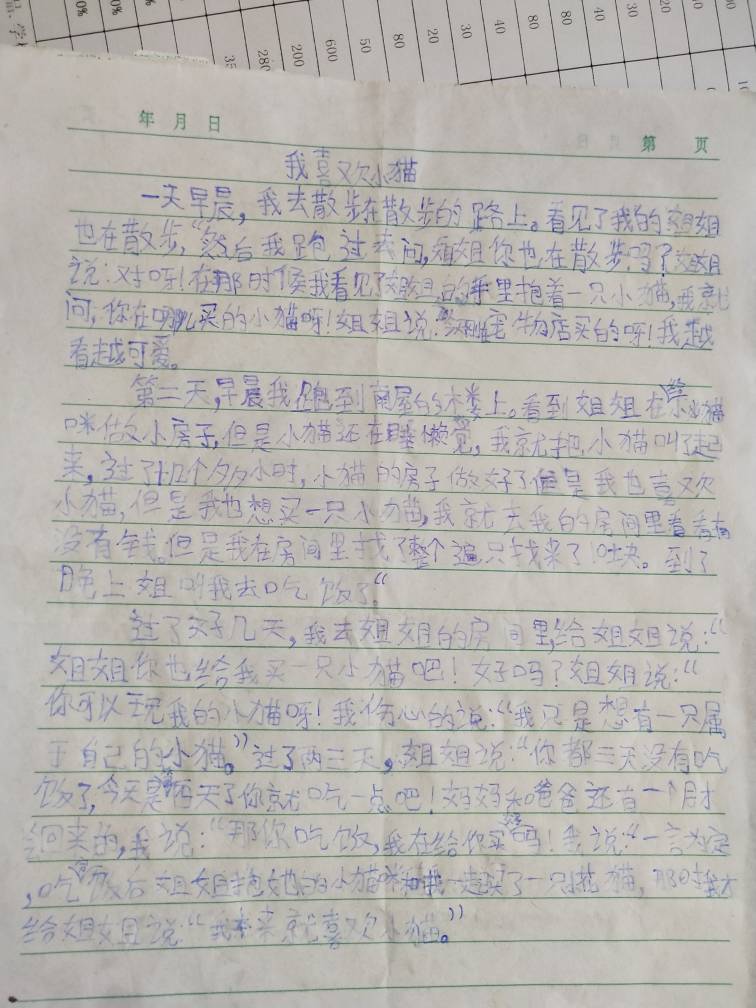 0% 0% 35 280 200 600 50 80 20 30 40 80 80 40 30 20
年 月 日
第 页
我喜欢小猫
一天早晨，我去散步在散步的路上。看见了我的姐姐
也在散步，“然后我跑过去问，姐姐你也在散步吗？姐姐
说：对呀！在那时候我看见了姐姐的手里抱着一只小猫，我就
问，你在哪儿买的小猫呀！姐姐说：宠物店买的呀！我越
看越可爱。
第二天，早晨我跑到南屋的木娄上。看到姐姐在给小猫
咪做小房子，但是小猫还在睡懒觉，我就把小猫叫了起
来，过了十几个多小时，小猫的房子做好了但是我也喜欢
小猫，但是我也想买一只小猫，我就去我的房间里看看有
没有钱。但是我在房间里找了整个遍只找来了10块。到了
晚上姐叫我去吃饭了“
过了好几天，我去姐姐的房间里，给姐姐说：“
姐姐你也给我买一只小猫吧！好吗？姐姐说：“
你可以玩我的小猫呀！我伤心的说：“我只是想有一只属
于自己的小猫。”过了两三天，姐姐说：“你都三天没有吃
饭了，今天是四天了你就吃一点吧！妈妈和爸爸还有一个月才
会回来的，我说：“那你吃饭，我在给你买猫吗！我说“一言为定
，吃完饭后姐姐抱她的小猫咪和我一起买了一只小花猫，那时我才
给姐姐说“我本来就喜欢小猫。”